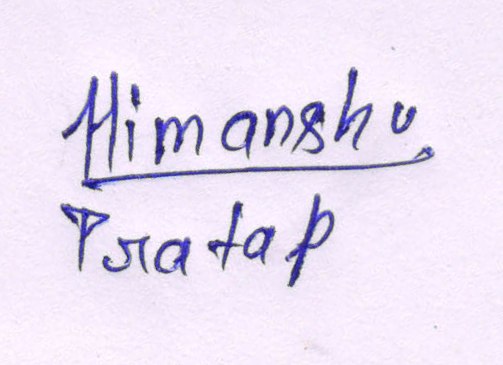 Himanshu
Pratap